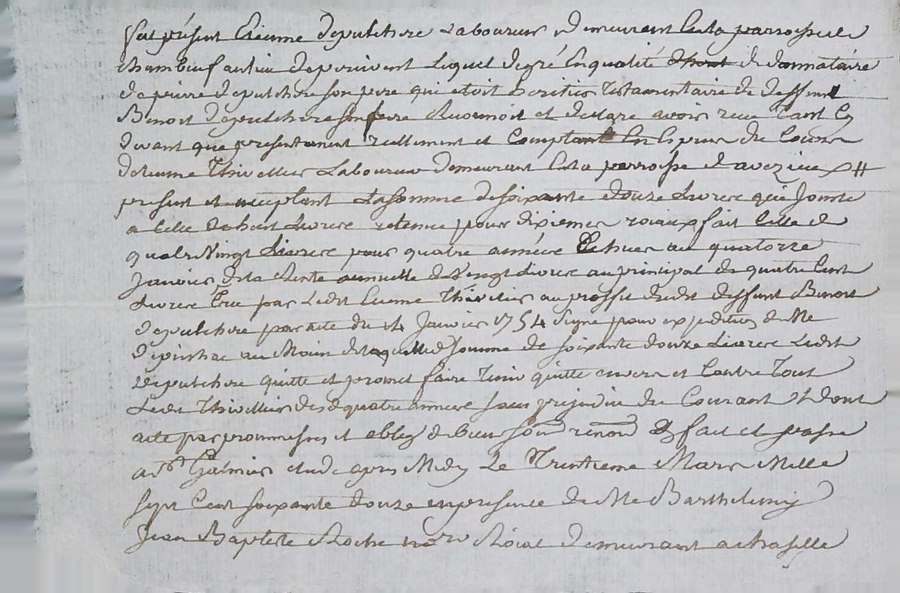 fut présent Etienne depulchere Laboureur demeurant En la parroisse de
chambeuf au lieu de perivent Lequel de gré En qualité de donnataire
de pierre depulchere son pere qui etoit heritier Testamentaire de deffunt
Benoit depulchere son frere Reconnoit et declare avoir receu Tant Cy
devant que presentement reellement et Comptant En Especes du Cours
detienne Thivellier Laboureur demeurant En la parroisse d'aveizieu
present et acceptant La somme de soixante douze Livres qui Jointe
a Celle de huit Livres retenue pour dixiemes roiaux fait Celle de
quatre Vingt Livres pour quatre années Echues au quatorze
Janvier de la Rente annuelle de Vingt Livres au principal de quatre Cent
Livres Crée par Ledt Etienne Thivellier au proffit dudt deffunt Benoit
depulchere par acte du 14 Janvier 1754 signé pour expedition de Me
au Moien de laquelle somme de soixante douze Livres Ledt
depulchere quitte et promet faire Tenir quitte envers et Contre Tout
Ledt Thivellier desd quatre années sans prejudice du Courant Dont
acte par promesses et oblig de biens soum renon fait et passé
a St Galmier etude apres Midy Le Trentieme Mars Mille
sept Cent soixante douze en presence de Me Barthelemy
Jean Baptiste Roche nore Roial demeurant a chaselle